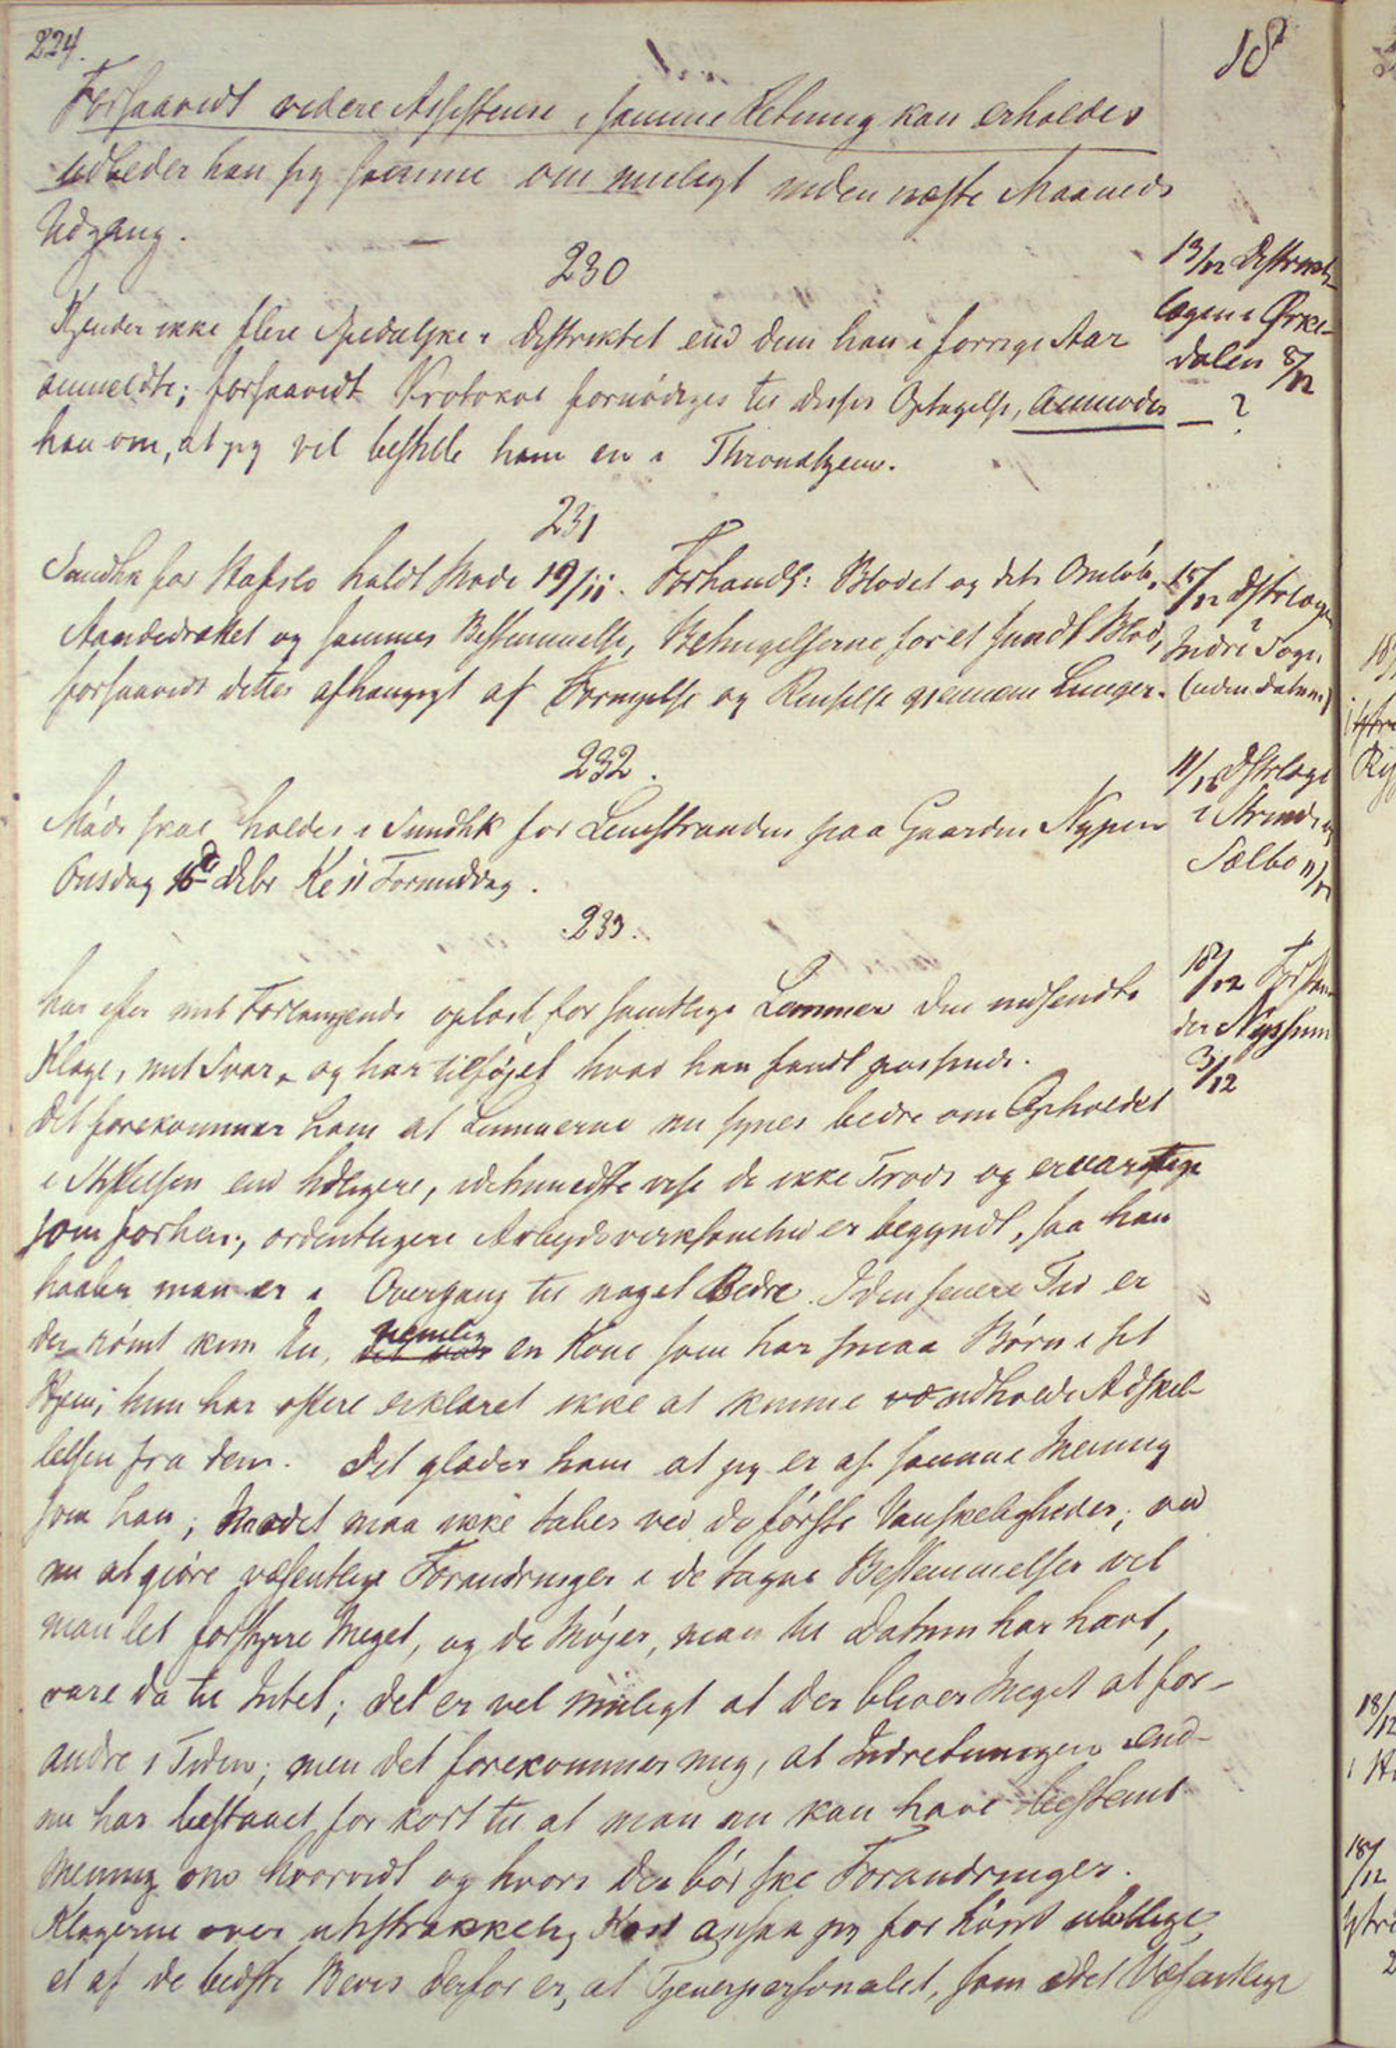 224.
18
Forsaavidt videre Assistence i samme Retning kan erholdes
udbeder han sig samme om muligt inden næste Maaneds
Udgang.
230
13/12 Distrikts-
lægen i Ørke-
dalen 8/12
Kjender ikke flere Spedalske i Distriktet end dem han i forrige Aar
anmeldte; forsaavidt Protokol fornødiges til disses Optagelse, anmodes — ?
han om, at jeg vil bestille ham en i Throndhjem.
231
15/12 Dstrlæge
Indre Sogn
(uden Datum)
Sundhk for Hafslo holdt Møde 19/11. Forhandl: Blodet og dets Omløb,
Aandedrættet og sammes Bestemmelse, Betingelserne for et sundt Blod,
forsaavidt dette er afhængigt af Fornyelse og Renselse gjennem Lunger.
232.
11/12 Dstrlæge
i Strinde og
Sælbo 11/12
Møde skal holdes i Sundhk for Leinstranden paa Gaarden Nypen
Onsdag 16de Debr Kl 11 Formiddag.
233.
18/12 Forstan-
der Nyssum
3/12
har efter mit Forlangende oplæst for samtlige Lemmer den indsendte
Klage, mit Svar, og har tilføjet hvad han fandt passende.
Det forekommer ham at Lemmerne nu synes bedre om Opholdet
i Stiftelsen end tidligere, idetmindste vise de ikke Trods og
som forhen; ordentligere Arbejdsvirksomhed er begyndt, saa han
haaber man er i Overgang til noget Bedre. I den senere Tid er
der rømt kun En, nemlig en Kone som har smaa Børn i sit
Hjem; hun har oftere erklæret ikke at kunne udholde Adskil-
lelsen fra dem. Det glæder ham at jeg er af samme Mening
som han; Modet maa ikke tabes ved de første Vanskeligheder; ved
nu at gjøre væsentlige Forandringer i de tagne Bestemmelser vil
man let forstyrre Meget, og de Møjer, man til Datum har havt,
vare da til Intet; det er vel muligt at der bliver Meget at for-
andre i Tiden; men det forekommer mig, at Indretningen end-
nu har bestaaet for kort til at man nu kan have bestemt
Mening om hvorvidt og hvori der bør ske Forandringer.
Klagerne over utilstrækkelig Kost ansaa jeg for høist ubillige
et af de bedste Bevis derfor er, at Tjenerpersonalet, som i det Væsentlige